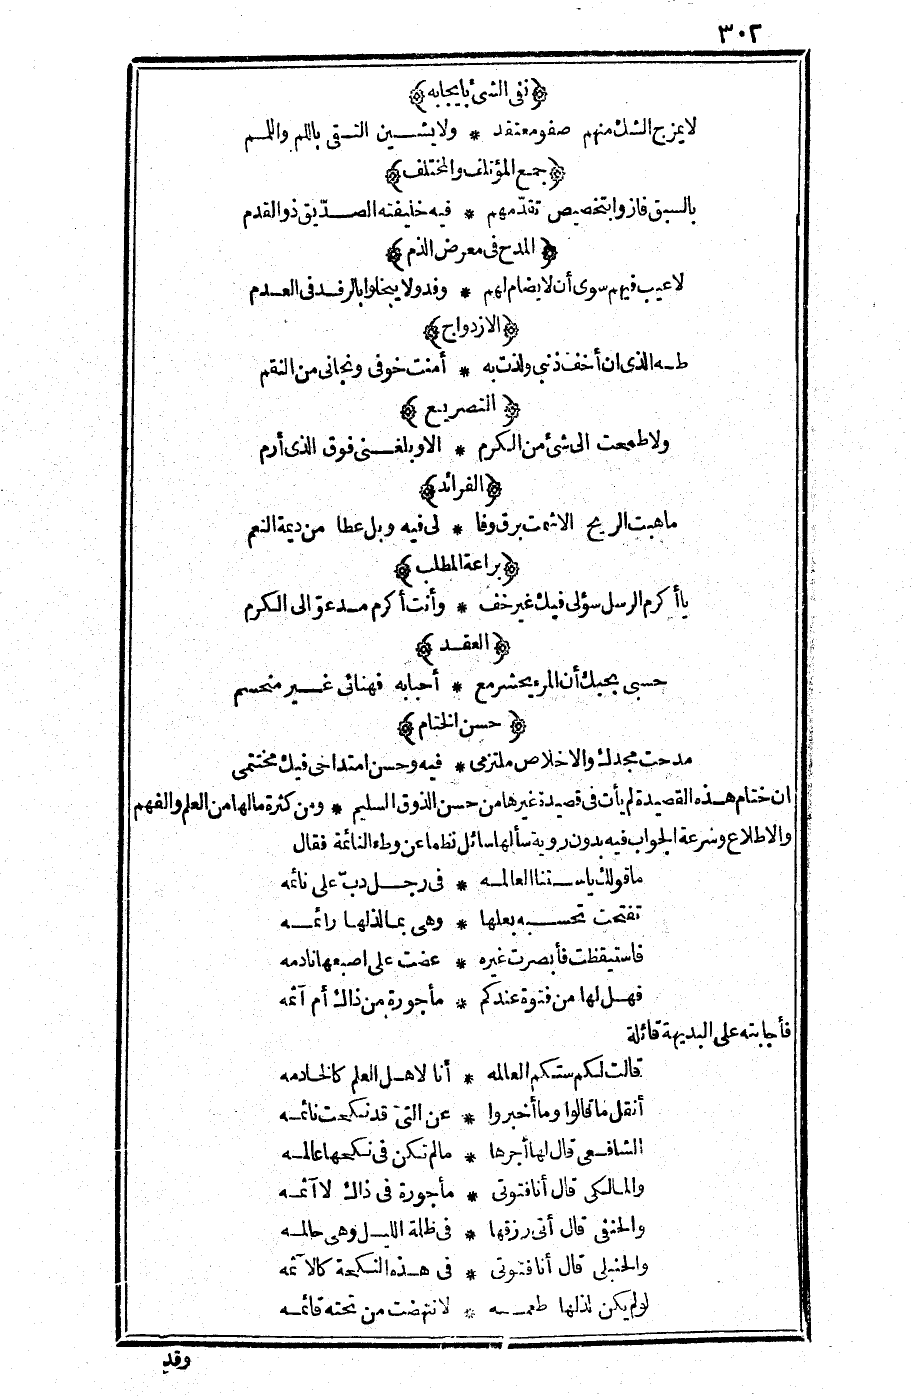 ٣٠٢
﴿نفى الشئ بايجابه﴾
لايمزج الشك منهم صفو معتقد * ولا يشين التقى باللم واللمم
﴿جمع المؤتلف والمختلف﴾
بالسبق فازوا بتخصيص تقدّمهم * فيه خليفته الصدّيق ذو القدم
﴿المدح فى معرض الذم﴾
لاعيب فيهم سوى أن لا يضام لهم * وفد ولا يبخلوا بالرفد فى العدم
﴿الازدواج﴾
طه الذى ان أخف ذنبى ولذت به * أمنت خوفى ونجانى من النقم
﴿التصريع﴾
ولا طمعت الى شئ من الكرم * الا وبلغنى فوق الذى أرم
﴿الفرائد﴾
ماهبت الريح الا شمت برق وفا * لى فيه وبل عطا من ديمة النعم
﴿براعة المطلب﴾
يا أكرم الرسل سؤلى فيك غير خف * وأنت أكرم مدعوّ الى الكرم
﴿العقد﴾
حسبى بحبك أن المرء يحشر مع * أحبابه فهنائى غير منحسم
﴿حسن الختام﴾
مدحت مجدك والاخلاص ملتزمى * فيه وحسن امتداحى فيك مختتمى
ان ختام هذه القصيدة لم يأت فى قصيدة غيرها من حسن الذوق السليم * ومن كثرة مالها من العلم والفهم
والاطلاع وسرعة الجواب فيه بدون روية سألها سائل نظما عن وطء النائمة فقال
ما قولك يا ستنا العالمه * فى رجل دبّ على نائمه
تفتحت تحسبه بعلها * وهى بما لذ لها رائمه
فاستيقظت فأبصرت غيره * عضت على اصبعها نادمه
فهل لها من فتوة عندكم * مأجورة من ذاك أم آثمه
فأجابته على البديهة قائلة
قالت لكم ستكم العالمه * أنا لاهل العلم كالخادمه
أنقل ما قالوا وما أخبروا * عن التى قد نكحت نائمه
الشافعى قال لها أجرها * مالم تكن فى نكحها عالمه
والمالكى قال أنا فتوتى * مأجورة فى ذاك لا آثمه
والحنفى قال أتى رزقها * فى ظلمة الليل وهى حالمه
والحنبلى قال أنا فتوتى * فى هذه النكحة كالآثمه
لو لم يكن لذ لها طعمه * لانتهضت من تحته قائمه
وقد